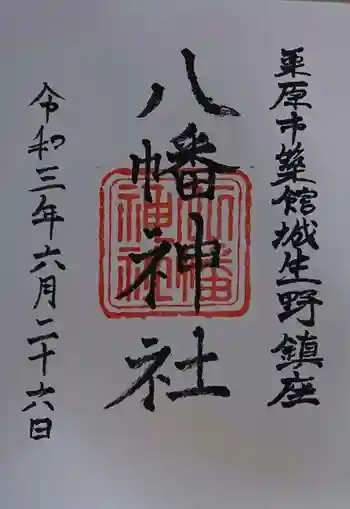 栗原市築館城生野鎮座
八幡神社
八幡神社
令和三年六月二十六日